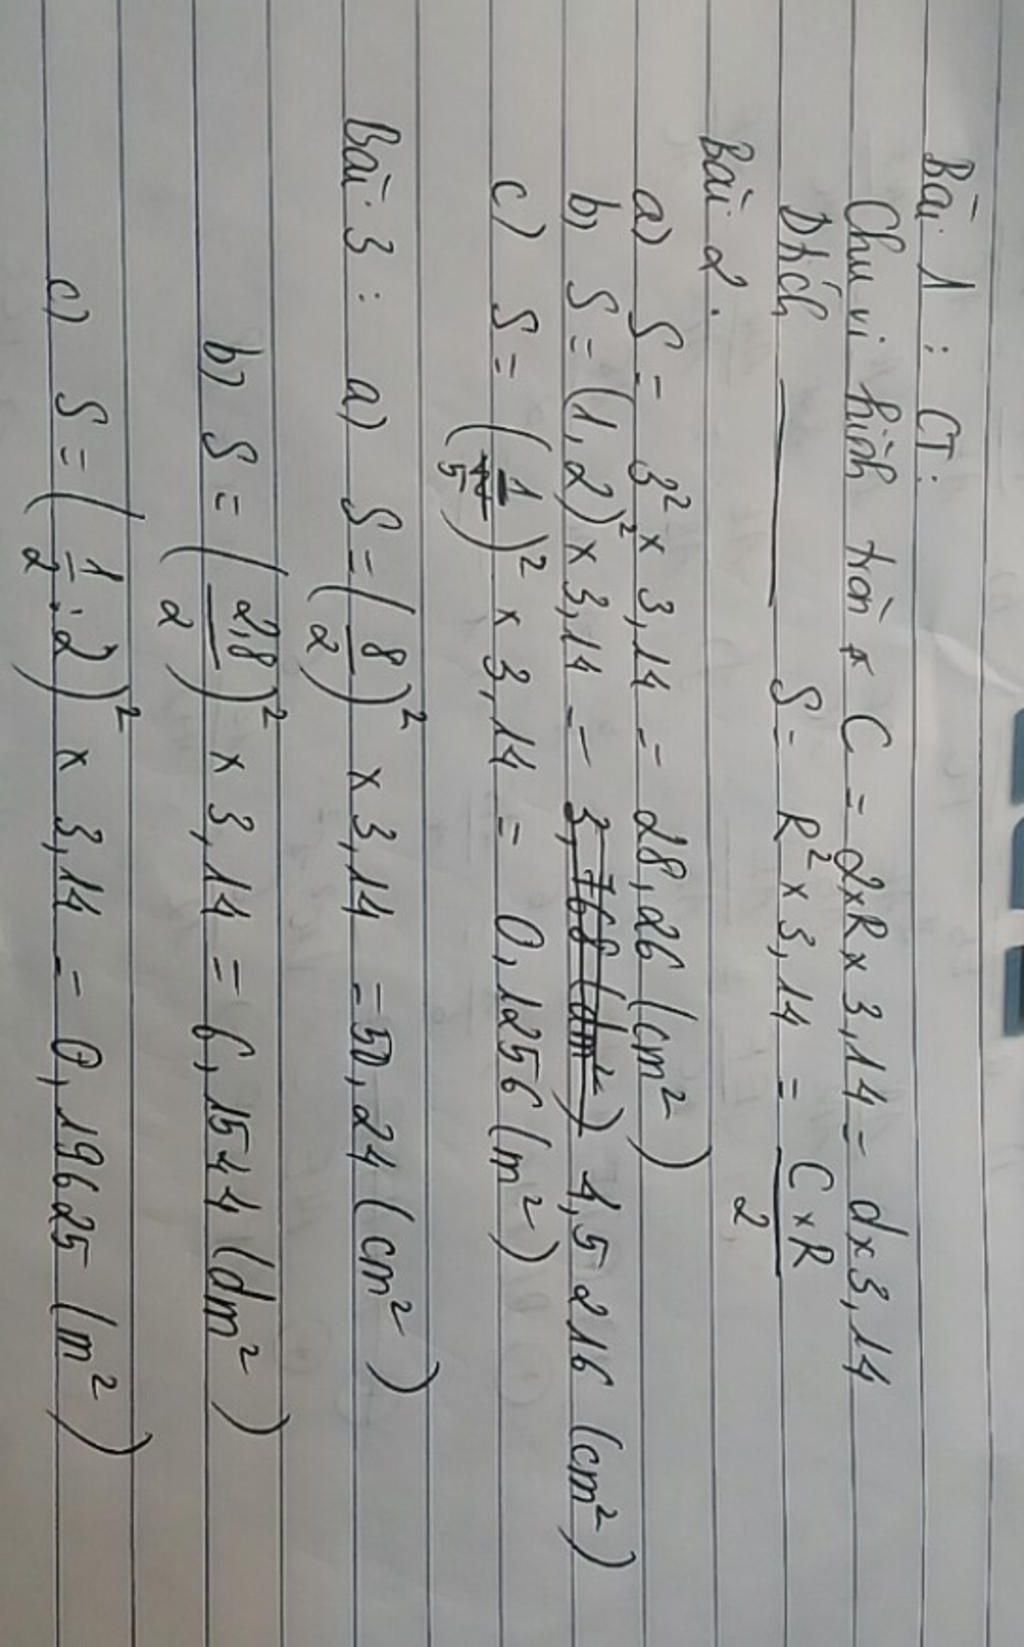 Bài 1 : CT:
Chu vi hình tròn C = 2xRx 3,14 = d x 3,14
Dtích ——— S = R² x 3,14 = C x R / 2
Bài 2.
a) S = 3² x 3,14 = 28,26 (cm²)
b) S = (1,2)² x 3,14 = 3,768 (dm²) 4,5216 (cm²)
c) S = (1/5)² x 3,14 = 0,1256 (m²)
Bài 3 : a) S = (8/2)² x 3,14 = 50,24 (cm²)
b) S = (2,8/2)² x 3,14 = 6,1544 (dm²)
c) S = (1/2 : 2)² x 3,14 = 0,19625 (m²)